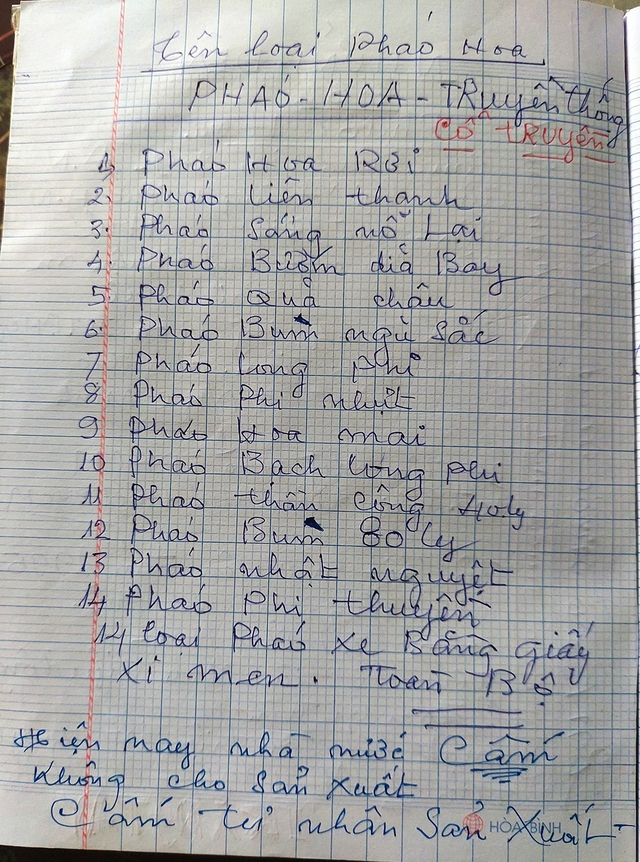 Tên loại Pháo Hoa
PHÁO - HOA - TRuyền thống
Cổ TRuyền
1 Pháo Hoa Rơi
2. Pháo Liên thanh
3. Pháo Sáng nổ Lại
4. Pháo Bướm dìa Bay
5 Pháo Quả chấu
6. Pháo Bum ngũ Sắc
7 Pháo Long Phi
8 Pháo Phi nhựt
9 Pháo Hoa mai
10 Pháo Bach Long Phi
11 Pháo thần công 40ly
12 Pháo Bum 80 ly
13 Pháo nhật nguyệt
14 Pháo Phi thuyền
14 loại Pháo xe Bằng giấy
xi men. Toàn Bộ
Hiện nay nhà nước Cấm
Không cho Sản xuất
Cấm tư nhân Sản Xuất
HÒA BÌNH